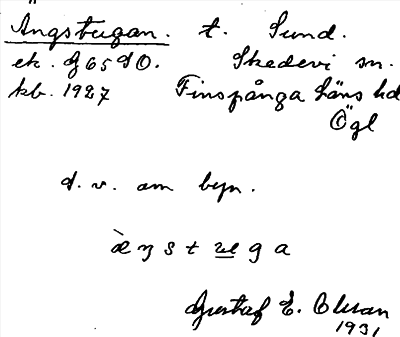 Ängstugan. t. Sund.
ek. 9f 65 d O. Skedevi sn.
kb. 1927 Finspånga läns hd
Ögl
d. v. om byn.
Gustaf E. Olsson
1931